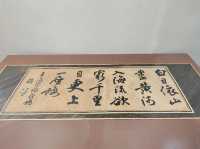 白日依山
盡黄河
入海流欲
窮千里
目更上
一層樓